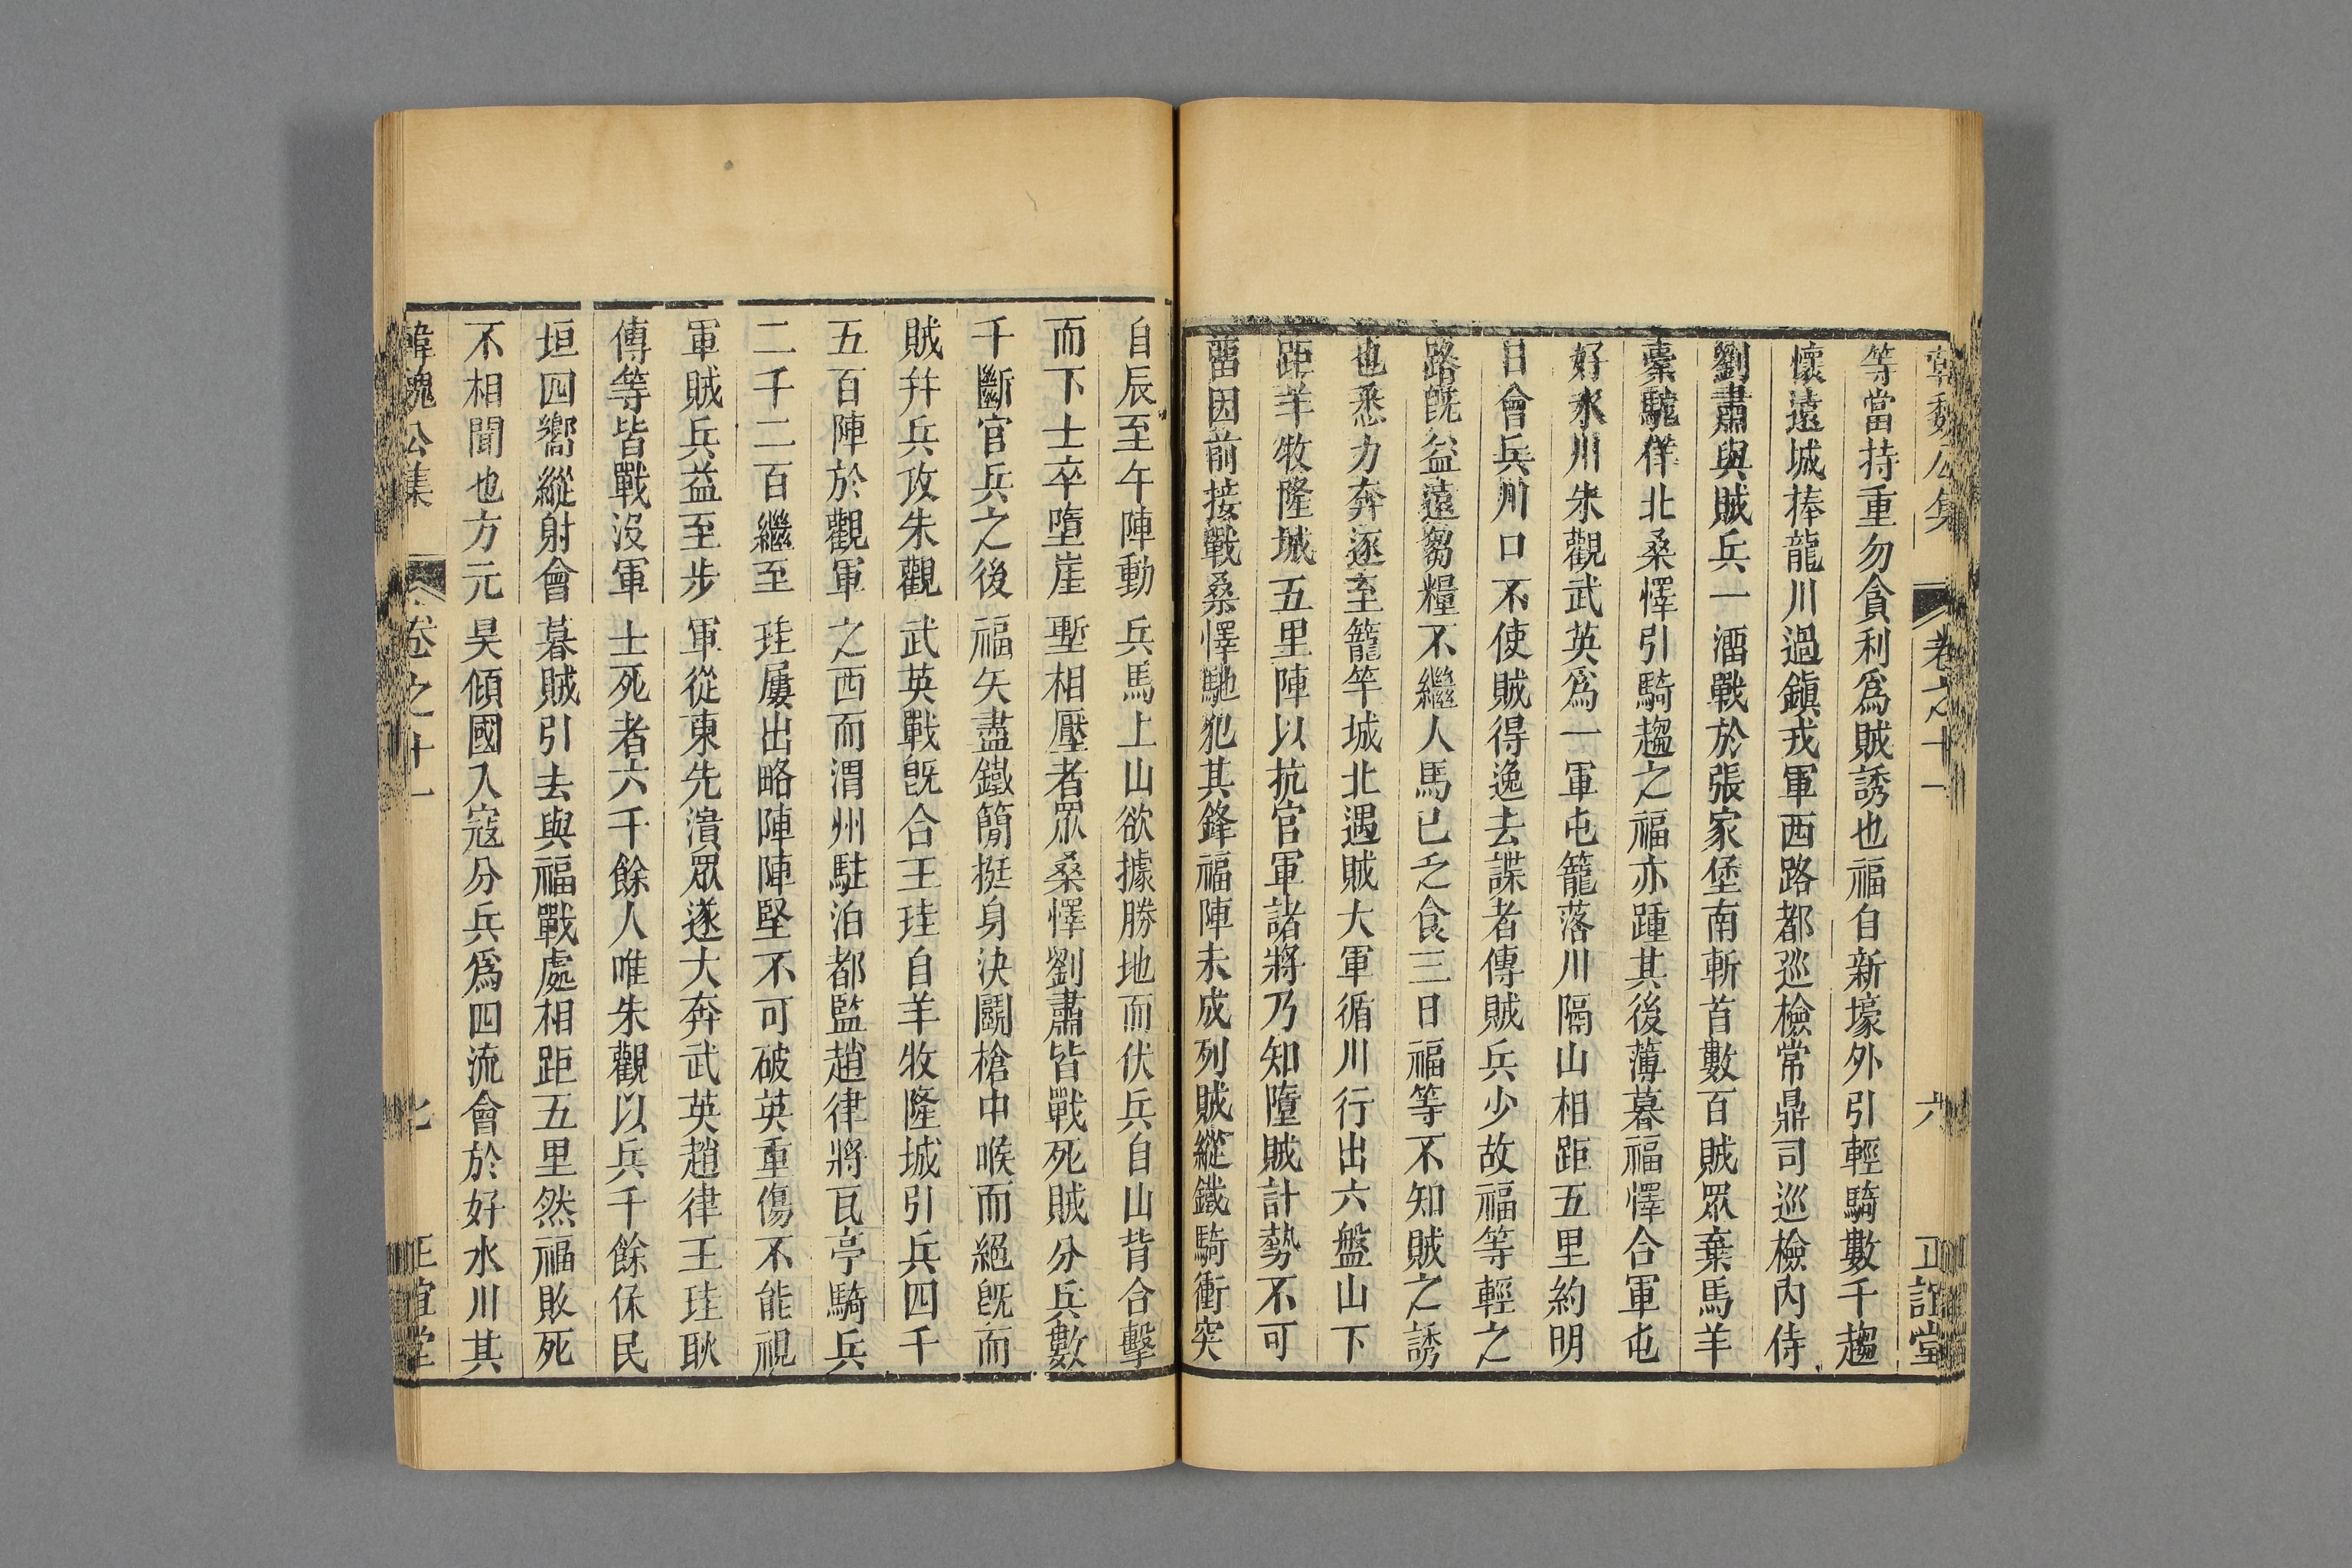 韓魏公集 卷之十一 六 正誼堂
等當持重勿貪利爲賊誘也福自新壕外引輕騎數千趨
懷遠城捧龍川過鎮戎軍西路都巡檢常鼎司巡檢內侍
劉肅與賊兵一酒戰於張家堡南斬首數百賊眾棄馬羊
橐駝佯北桑懌引騎趨之福亦踵其後薄暮福懌合軍屯
好水川朱觀武英爲一軍屯籠落川隔山相距五里約明
日會兵川口不使賊得逸去諜者傳賊兵少故福等輕之
路旣益遠芻糧不繼人馬已乏食三日福等不知賊之誘
也悉力奔逐至籠竿城北遇賊大軍循川行出六盤山下
距羊牧隆城五里陣以抗官軍諸將乃知墮賊計勢不可
畱因前接戰桑懌馳犯其鋒福陣未成列賊縱鐵騎衝突
自辰至午陣動兵馬上山欲據勝地而伏兵自山背合擊
而下士卒墮崖塹相壓者眾桑懌劉肅皆戰死賊分兵數
千斷官兵之後福矢盡鐵簡挺身決鬭槍中喉而絕旣而
賊幷兵攻朱觀武英戰旣合王珪自羊牧隆城引兵四千
五百陣於觀軍之西而渭州駐泊都監趙律將瓦亭騎兵
二千二百繼至珪屢出略陣陣堅不可破英重傷不能視
軍賊兵益至步軍從東先潰眾遂大奔武英趙律王珪耿
傅等皆戰沒軍士死者六千餘人唯朱觀以兵千餘保民
垣四嚮縱射會暮賊引去與福戰處相距五里然福敗死
不相聞也方元昊傾國入寇分兵爲四流會於好水川其
韓魏公集 卷之十一 七 正誼堂